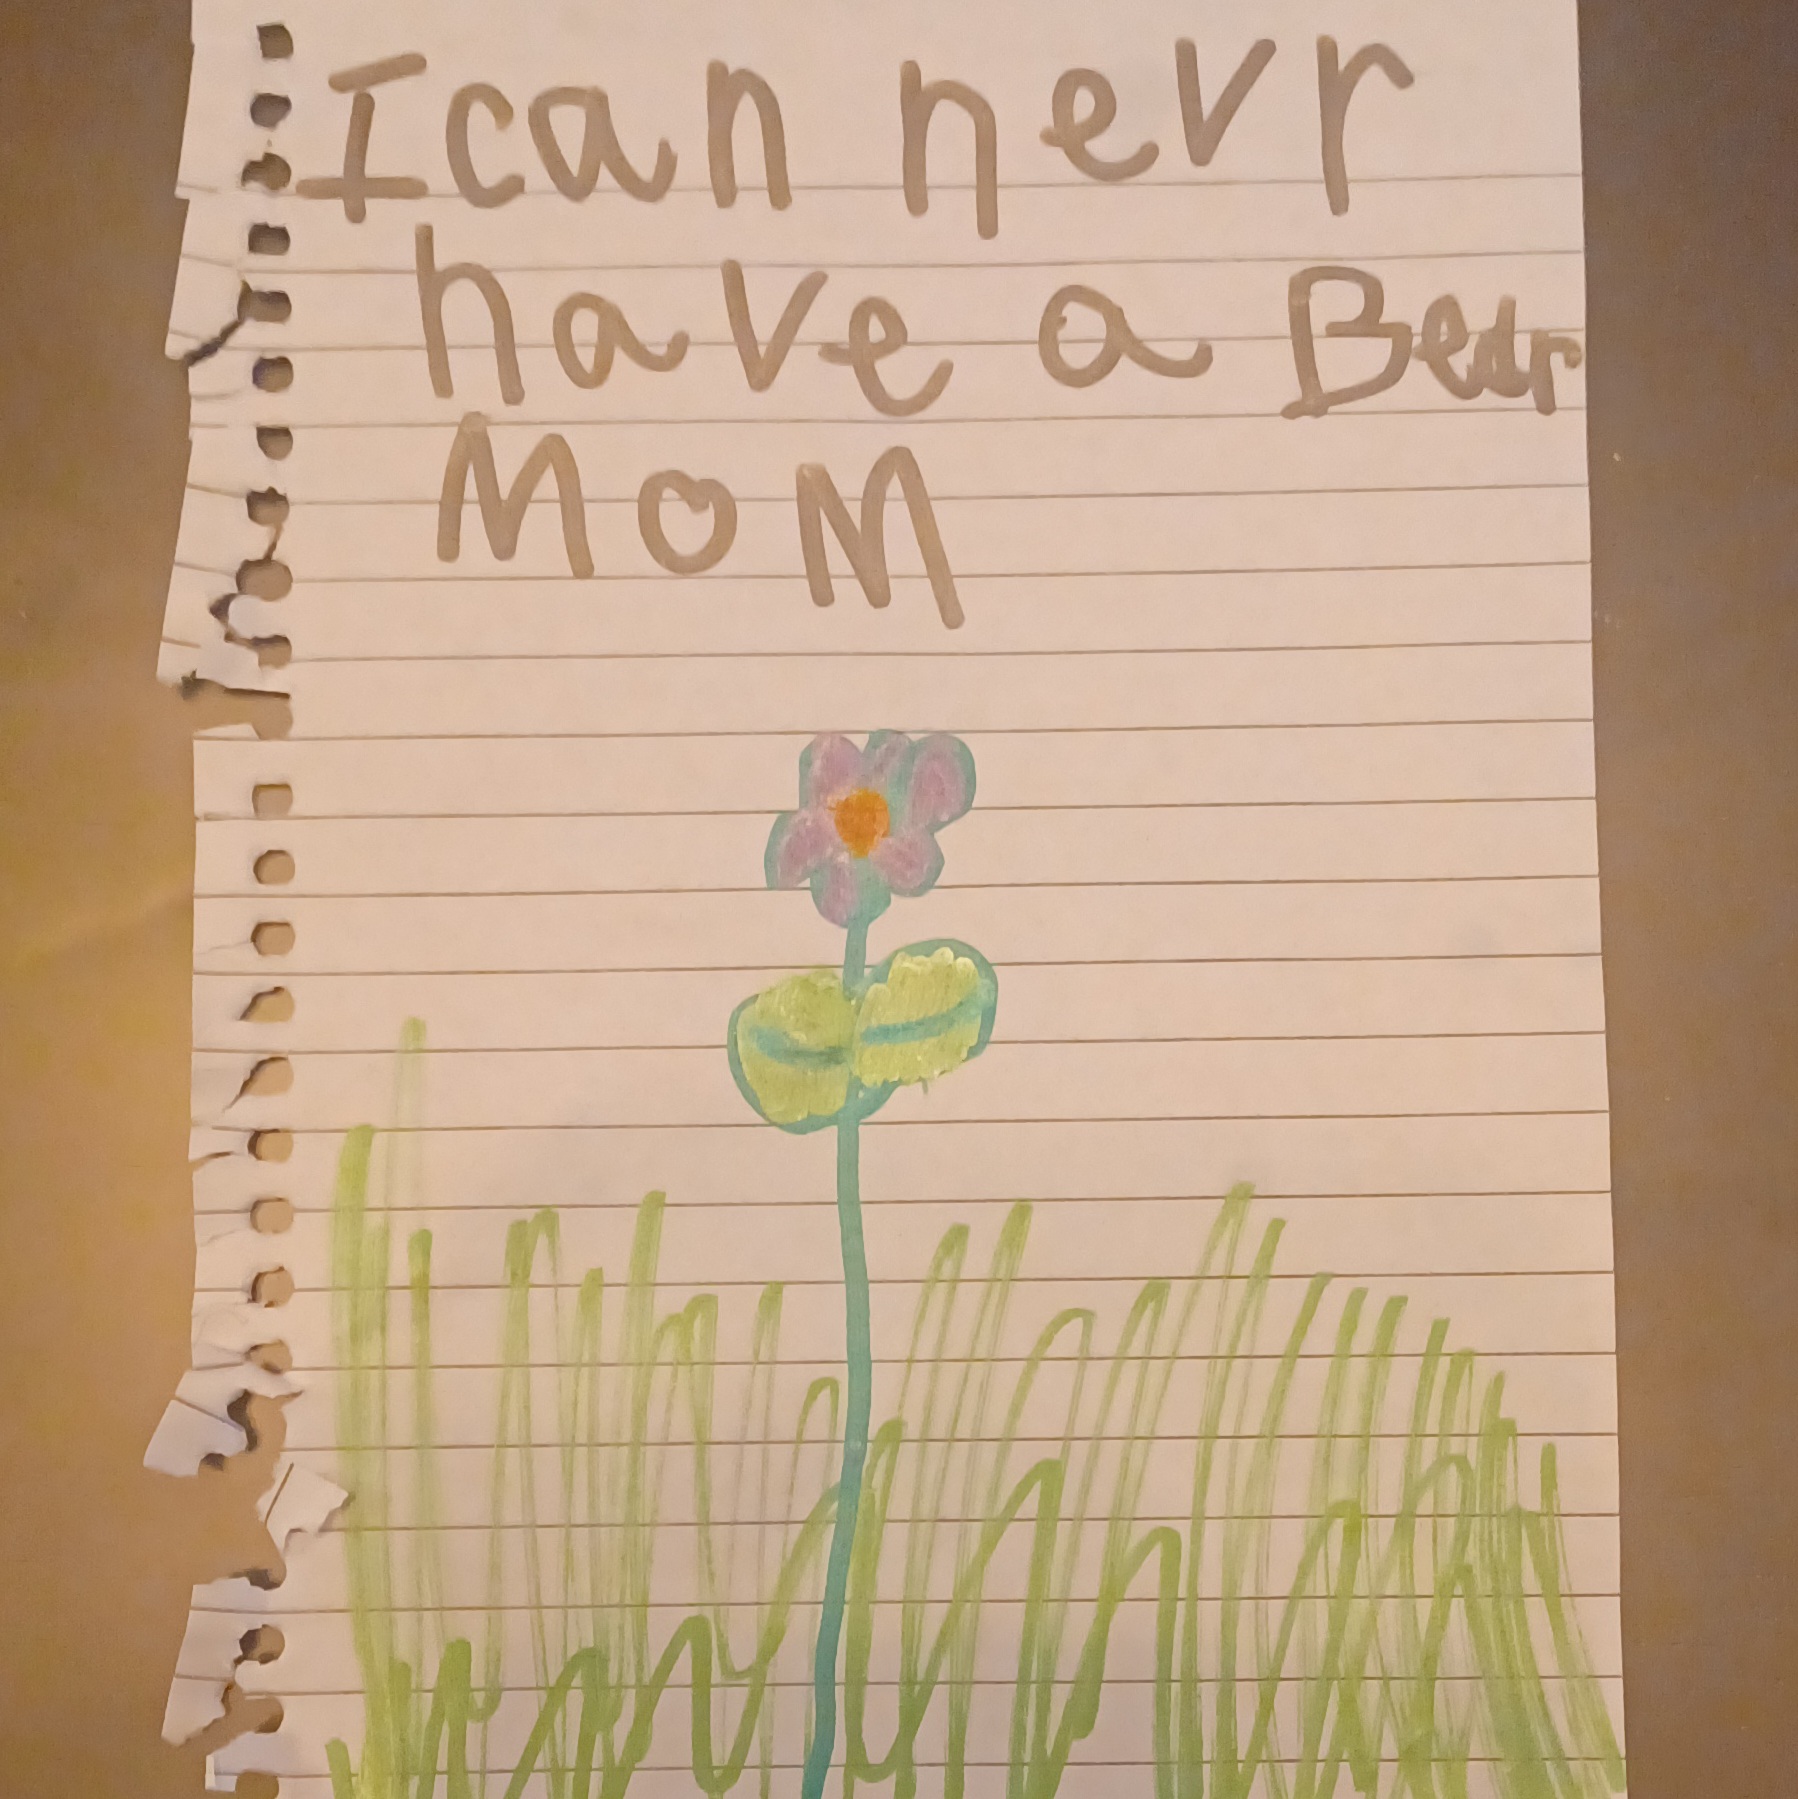 I can nevr
have a Bedr
MOM